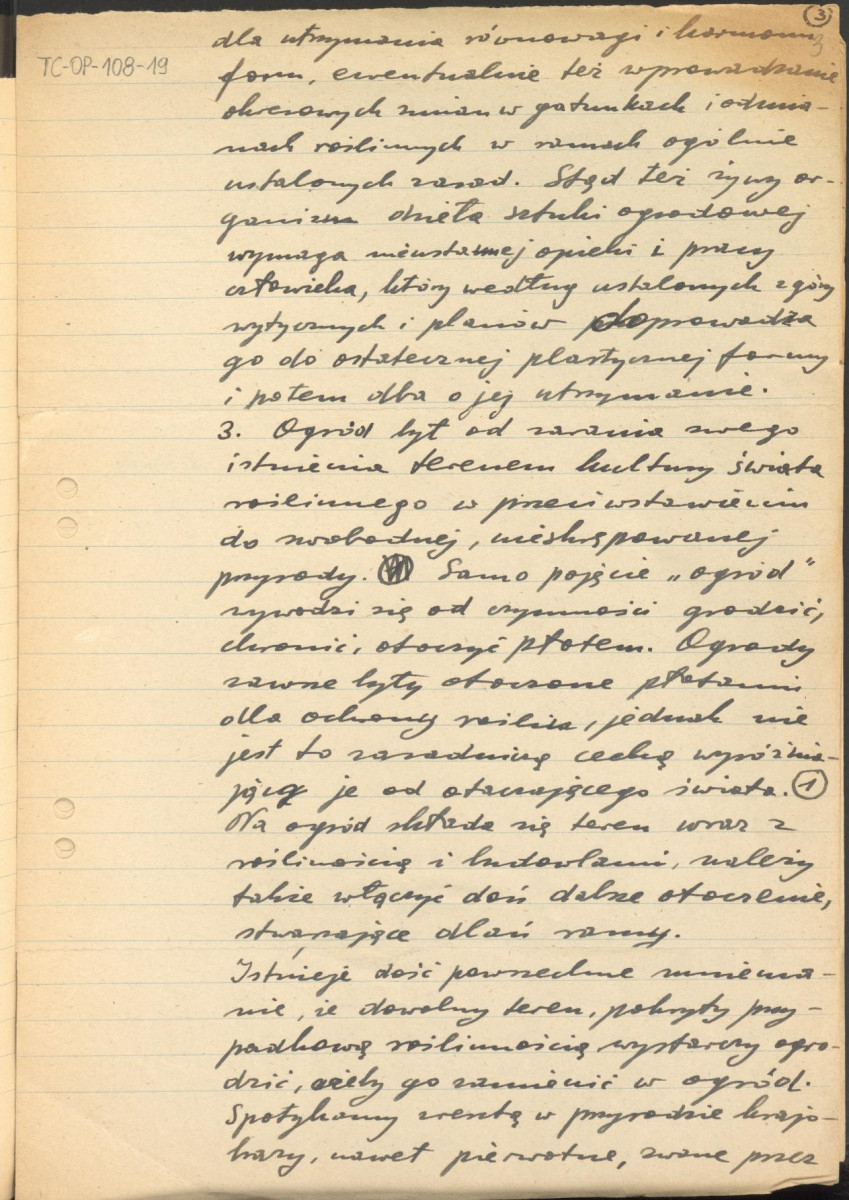 3
TC-OP-108-19
dla utrzymania równowagi i harmonii
form, ewentualnie też wprowadzanie
okresowych zmian w gatunkach i odmia-
nach roślinnych w ramach ogólnie
ustalonych zasad. Stąd też żywy or-
ganizm dzieła sztuki ogrodowej
wymaga nieustannej opieki i pracy
człowieka, który według ustalonych z góry
wytycznych i planów doprowadza
go do ostatecznej plastycznej formy
i potem dba o jej utrzymanie.
3. Ogród był od zarania swego
istnienia terenem kultury świata
roślinnego w przeciwstawieniu
do swobodnej, nieskrępowanej
przyrody. Samo pojęcie „ogród"
wywodzi się od czynności grodzić,
chronić, otoczyć płotem. Ogrody
zawsze były otoczone płotami
dla ochrony roślin, jednak nie
jest to zasadniczą cechą wyróżnia-
jącą je od otaczającego świata. 1
Na ogród składa się teren wraz z
roślinością i budowlami, należy
także włączyć doń dalsze otoczenie,
stwarzające dlań ramy.
Istnieje dość powszechne mniema-
nie, że dowolny teren, pokryty przy-
padkową roślinnością wystarczy ogro-
dzić, ażeby go zamienić w ogród.
Spotykamy zresztą w przyrodzie krajo-
brazy, nawet pierwotne, zwane przez